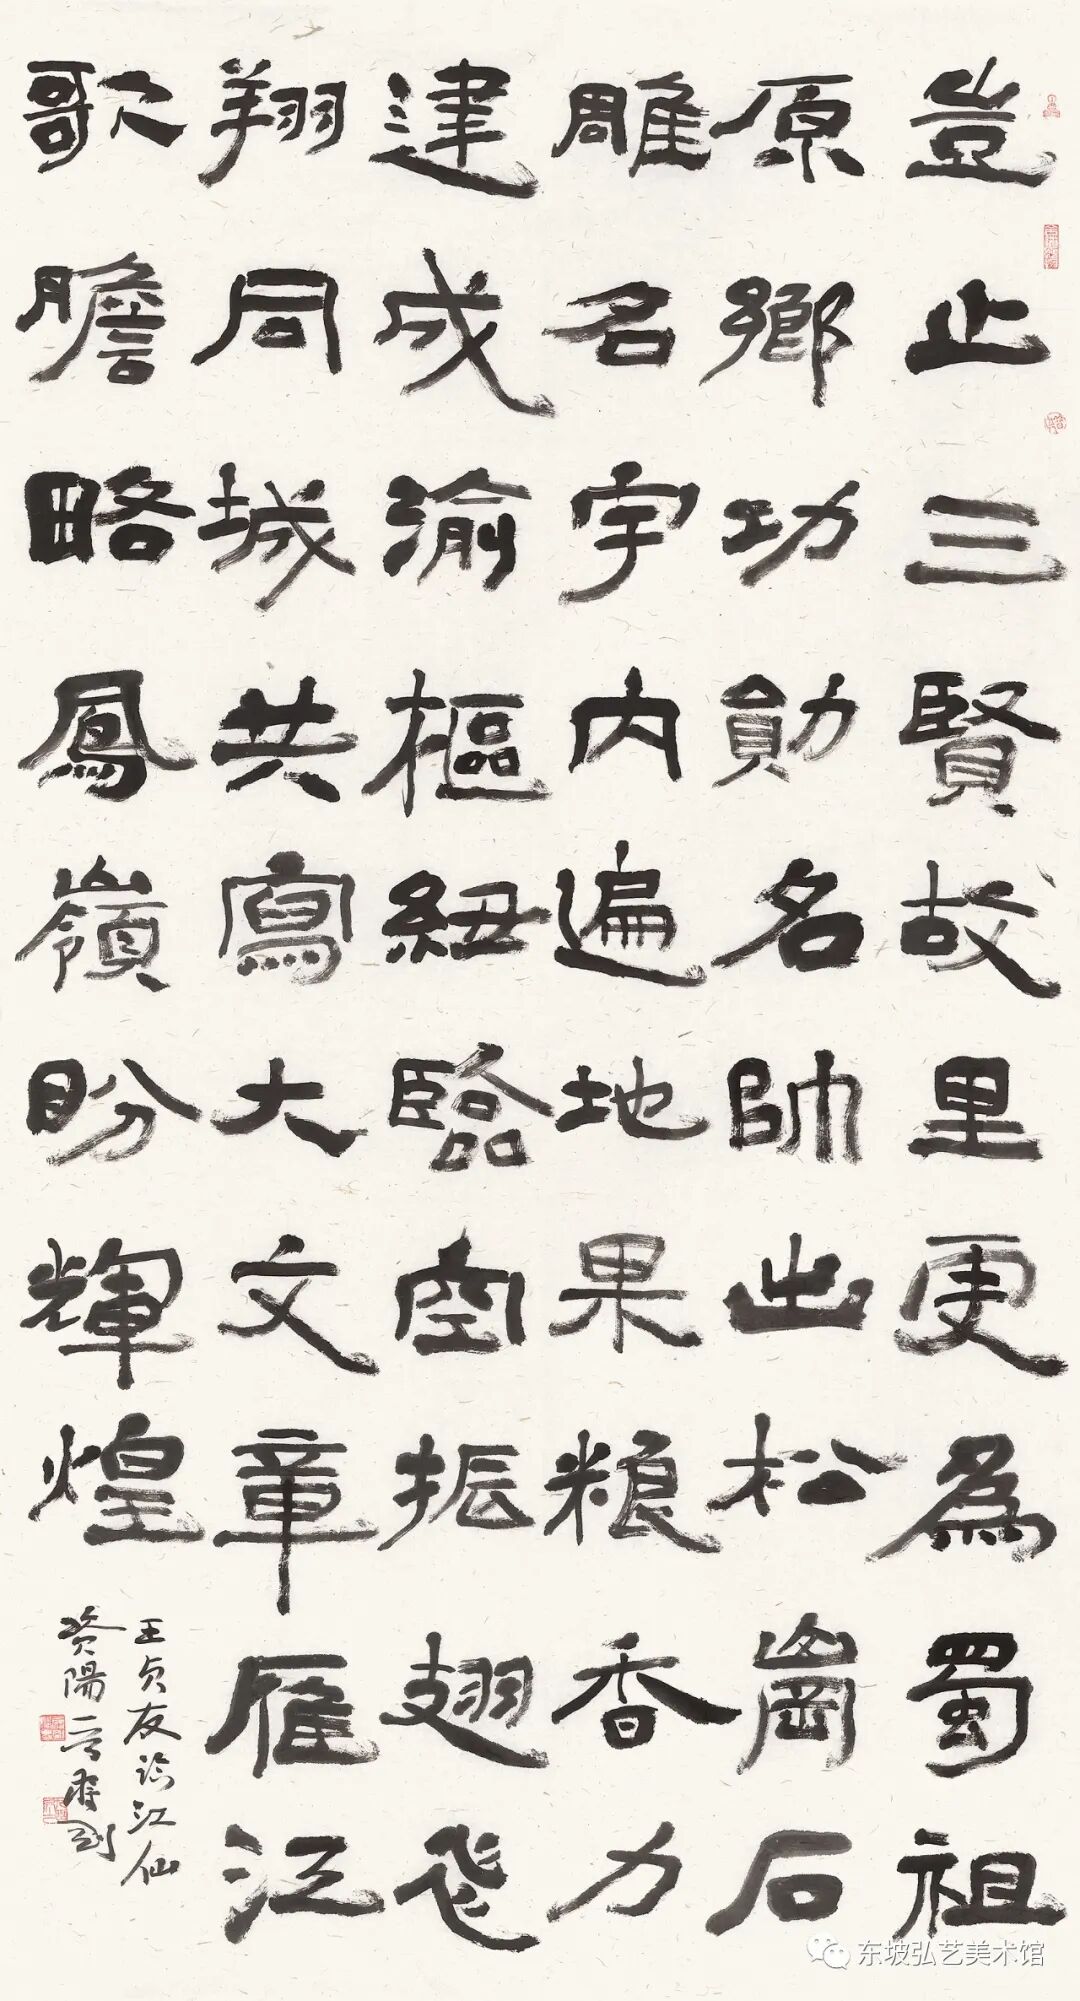 豈止三賢故里更為蜀祖
原鄉功勛名帥出松崗石
雕名宇內遍地果粮香力
建成渝樞紐臨空振翅飛
翔同城共寫大文章雁江
歌膽略鳳嶺盼輝煌
王貞友臨江仙
資陽
东坡弘艺美术馆